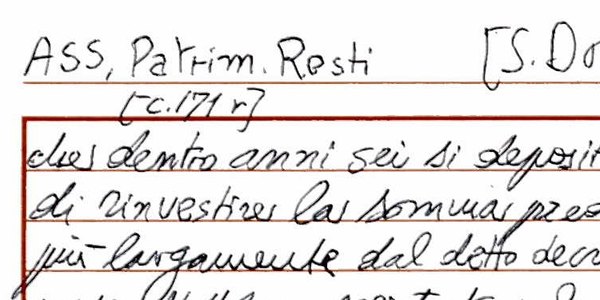 ASS, Patrim. Resti [S. Do
[c. 171 r]
che dentro anni sei si deposit
di rinvestire la somma pres
più largamente dal detto decr